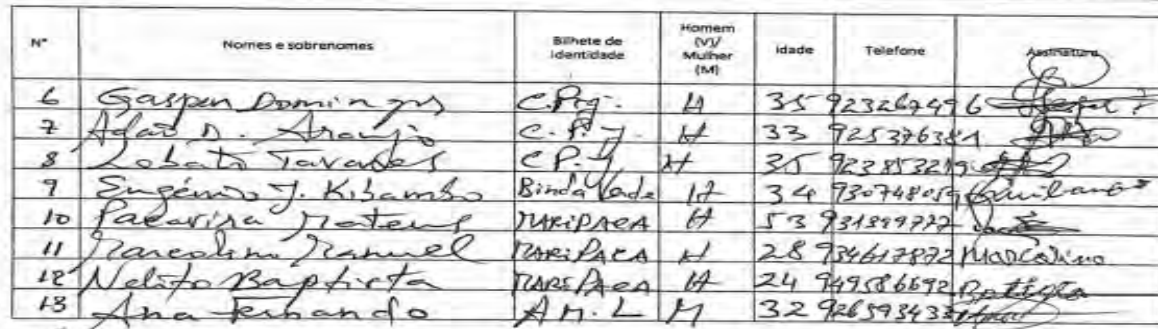 Nº Nomes e sobrenomes Bilhete de identidade Homem (V)/ Mulher (M) Idade Telefone Assinatura
6 Gaspar Domingos C.Prj. H 35 923267496
7 Adão D. Araujo C.P.J. H 33 925376381
8 Lobato Tavares C P.J H 35 922853219
9 Eugénio J. Kibambo Binda H 34 930748059
10 Pacavira Mateus MARIPACA H 53 931899777
11 Marcolino Manuel MARIPACA H 28 934617872 MARCOLino
12 Nelito Baptista MARIPACA H 24 949586692 Batista
13 Ana Fernando A M. L M 32 926593433